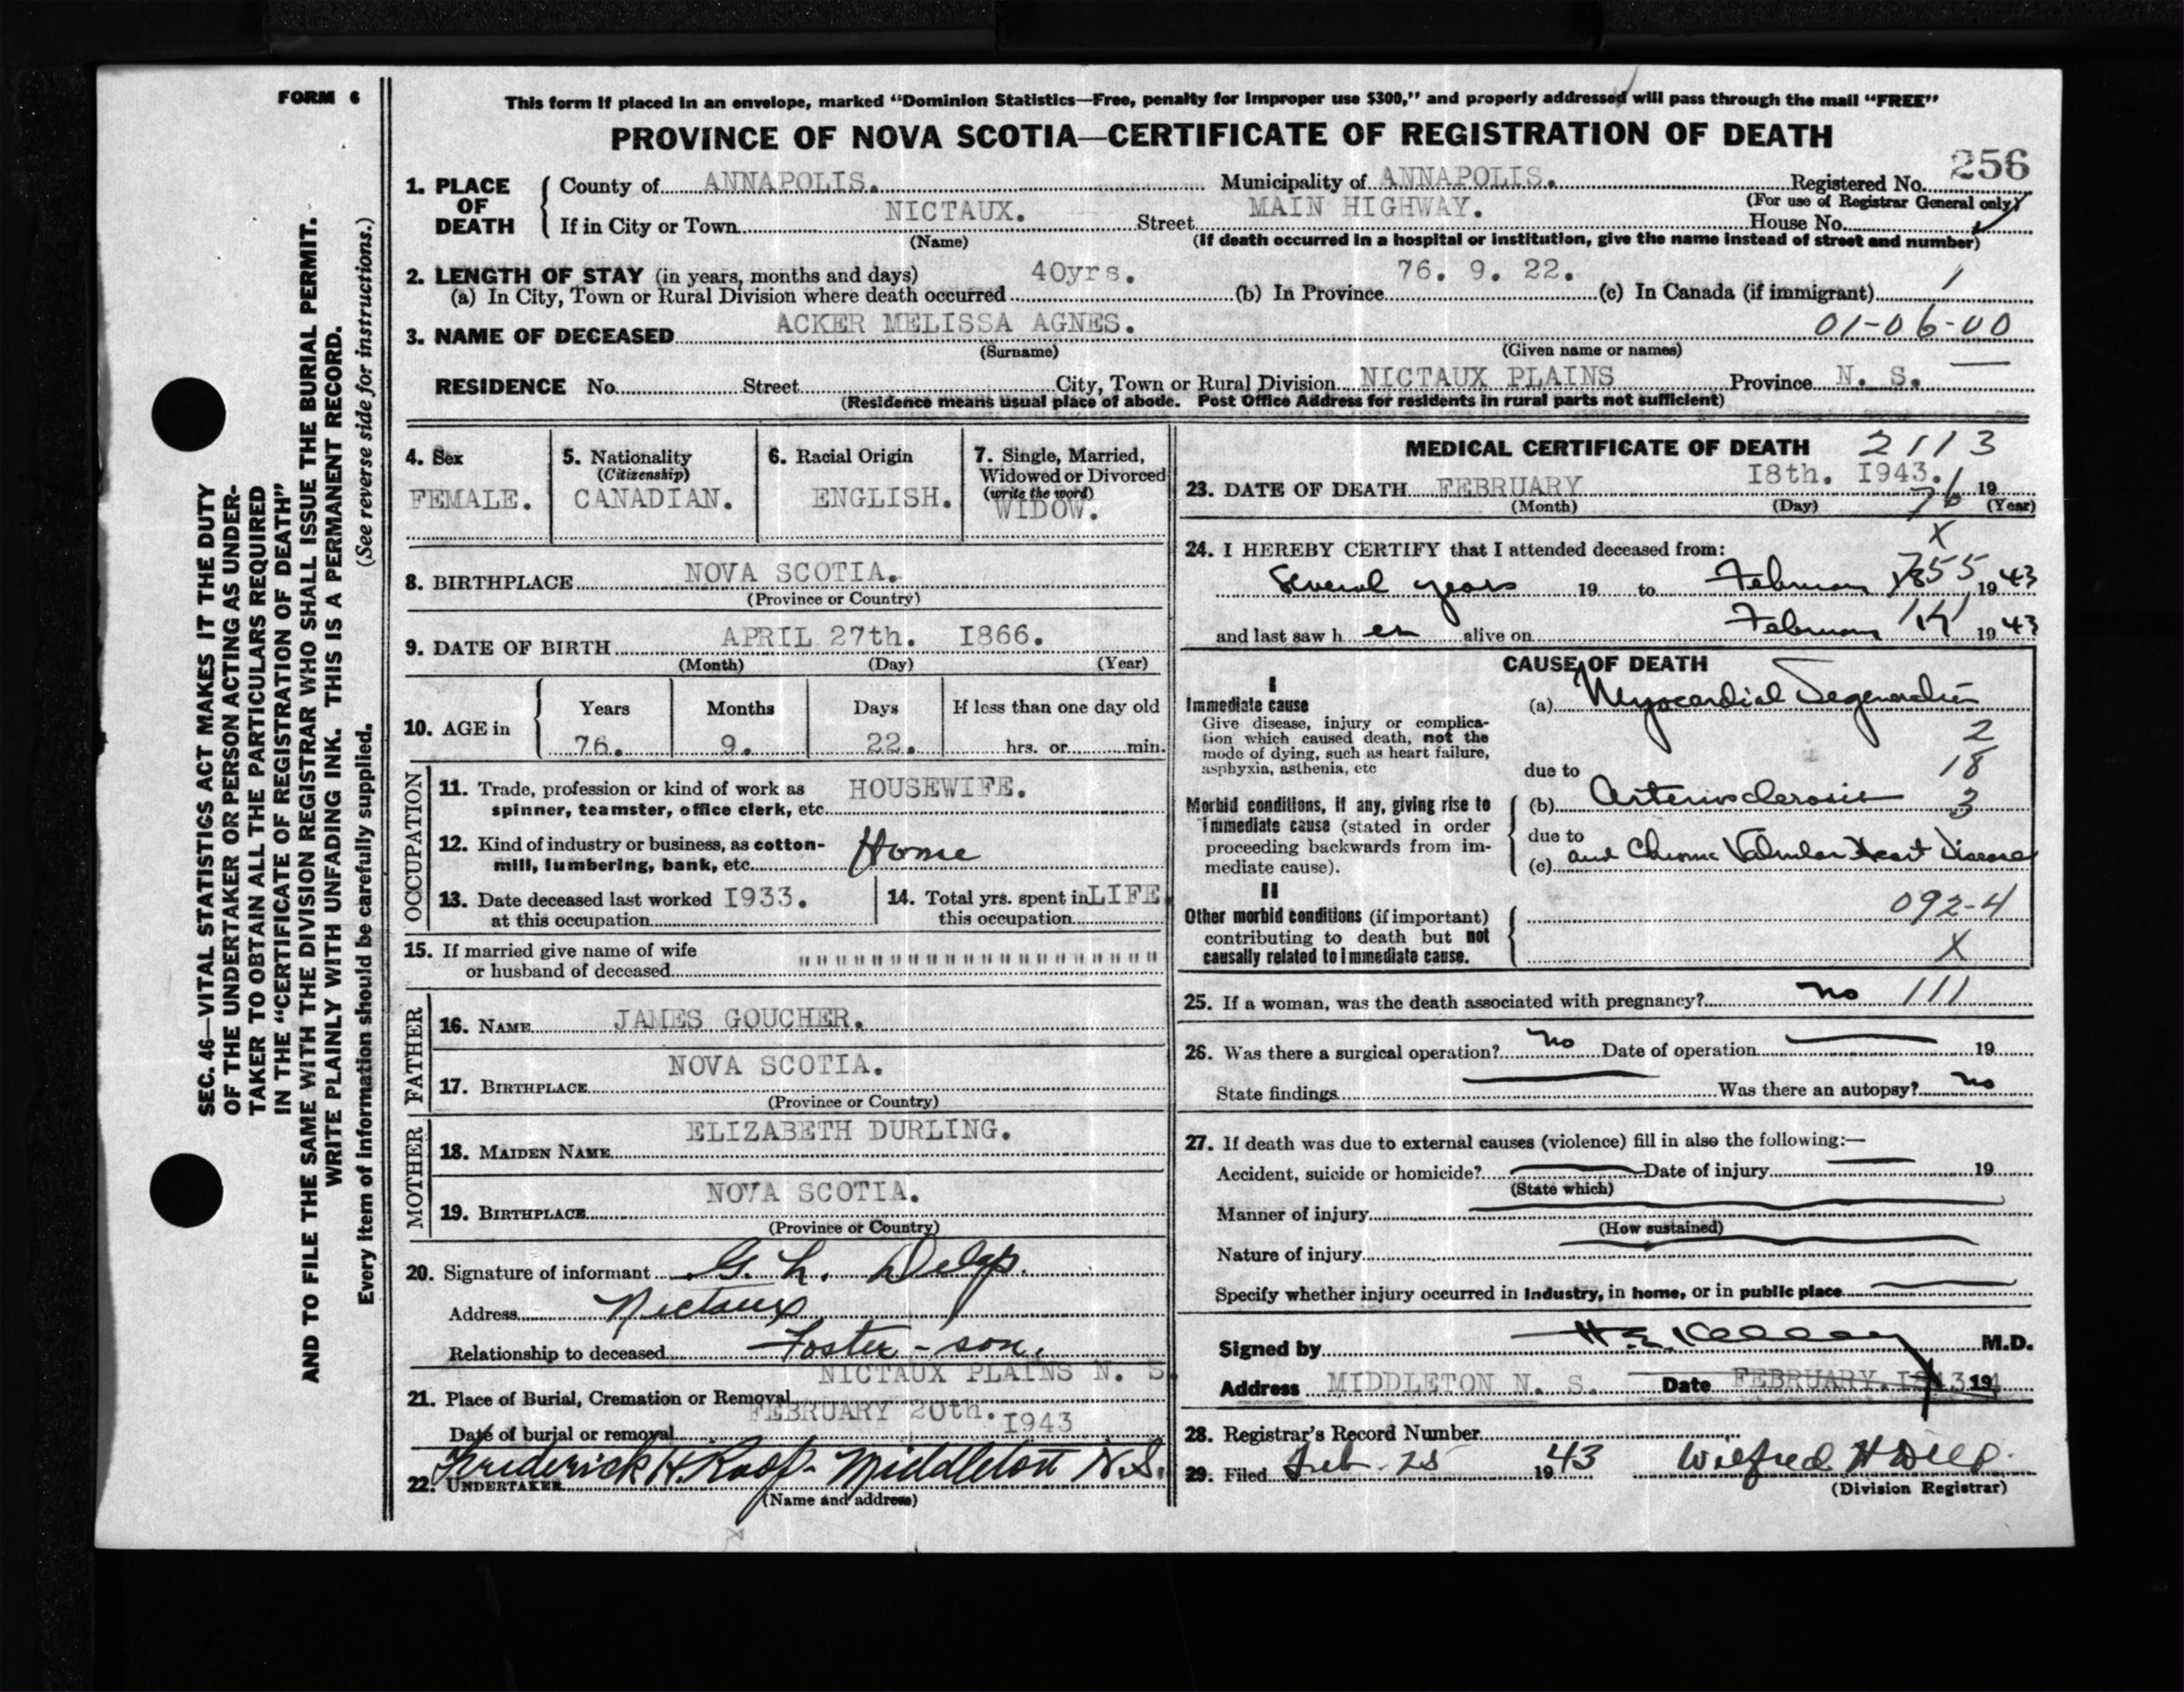 FORM 6
This form if placed in an envelope, marked "Dominion Statistics—Free, penalty for improper use $300," and properly addressed will pass through the mail "FREE"
PROVINCE OF NOVA SCOTIA—CERTIFICATE OF REGISTRATION OF DEATH
256
1. PLACE OF DEATH County of ANNAPOLIS. Municipality of ANNAPOLIS. Registered No.
(For use of Registrar General only)
If in City or Town NICTAUX. Street MAIN HIGHWAY. House No.
(Name) (If death occurred in a hospital or institution, give the name instead of street and number)
2. LENGTH OF STAY (in years, months and days)
(a) In City, Town or Rural Division where death occurred 40yrs. (b) In Province 76. 9. 22. (c) In Canada (if immigrant) 1
3. NAME OF DECEASED ACKER MELISSA AGNES. 01-06-00
(Surname) (Given name or names)
RESIDENCE No. Street City, Town or Rural Division NICTAUX PLAINS Province N. S. —
(Residence means usual place of abode. Post Office Address for residents in rural parts not sufficient)
4. Sex
FEMALE.
5. Nationality
(Citizenship)
CANADIAN.
6. Racial Origin
ENGLISH.
7. Single, Married,
Widowed or Divorced
(write the word)
WIDOW.
8. BIRTHPLACE NOVA SCOTIA.
(Province or Country)
9. DATE OF BIRTH APRIL 27th. I866.
(Month) (Day) (Year)
10. AGE in
Years Months Days If less than one day old
76. 9. 22. hrs. or min.
OCCUPATION
11. Trade, profession or kind of work as HOUSEWIFE.
spinner, teamster, office clerk, etc.
12. Kind of industry or business, as cotton-
mill, lumbering, bank, etc. Home
13. Date deceased last worked I933.
at this occupation
14. Total yrs. spent in LIFE
this occupation
15. If married give name of wife
or husband of deceased """"""""""""""""""""
FATHER
16. NAME JAMES GOUCHER.
17. BIRTHPLACE NOVA SCOTIA.
(Province or Country)
MOTHER
18. MAIDEN NAME ELIZABETH DURLING.
19. BIRTHPLACE NOVA SCOTIA.
(Province or Country)
20. Signature of informant G. L. Delap.
Address Nictaux
Relationship to deceased Foster-son.
21. Place of Burial, Cremation or Removal NICTAUX PLAINS N. S
Date of burial or removal FEBRUARY 20th. I943
22. UNDERTAKER Frederick H. Roop- Middleton N.S.
(Name and address)
MEDICAL CERTIFICATE OF DEATH 2113
23. DATE OF DEATH FEBRUARY I8th. I943. 19
(Month) (Day) (Year)
X
24. I HEREBY CERTIFY that I attended deceased from:
Several years 19 to February 1943
and last saw her alive on February 1943
CAUSE OF DEATH
I
Immediate cause
Give disease, injury or complica-
tion which caused death, not the
mode of dying, such as heart failure,
asphyxia, asthenia, etc
(a) Myocardial Degeneration
2
18
3
due to
Morbid conditions, if any, giving rise to
immediate cause (stated in order
proceeding backwards from im-
mediate cause).
(b) Arteriosclerosis
due to
(c) and Chronic Valvular Heart Disease
II
Other morbid conditions (if important)
contributing to death but not
causally related to immediate cause.
092-4
X
25. If a woman, was the death associated with pregnancy? no 111
26. Was there a surgical operation? No Date of operation 19
State findings Was there an autopsy? no
27. If death was due to external causes (violence) fill in also the following:—
Accident, suicide or homicide? Date of injury 19
(State which)
Manner of injury
(How sustained)
Nature of injury
Specify whether injury occurred in industry, in home, or in public place
Signed by H. E. Kelley M.D.
Address MIDDLETON N. S. Date FEBRUARY. 194
28. Registrar's Record Number
29. Filed Feb. 25 1943 Wilfred H Delap.
(Division Registrar)
SEC. 46—VITAL STATISTICS ACT MAKES IT THE DUTY
OF THE UNDERTAKER OR PERSON ACTING AS UNDER-
TAKER TO OBTAIN ALL THE PARTICULARS REQUIRED
IN THE "CERTIFICATE OF REGISTRATION OF DEATH"
AND TO FILE THE SAME WITH THE DIVISION REGISTRAR WHO SHALL ISSUE THE BURIAL PERMIT.
WRITE PLAINLY WITH UNFADING INK. THIS IS A PERMANENT RECORD.
Every item of information should be carefully supplied. (See reverse side for instructions.)